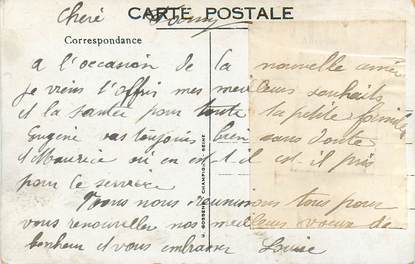 CARTE POSTALE
Cheré
Correspondance
a l'occasion de la nouvelle année
je viens t'offrir mes meilleurs souhaits
et la santée pour toute la petite famille
Eugène vas toujours bien sans doute
et Maurice où en est il est il pris
pour le service
Nous nous reunissons tous pour
vous renouveller nos meilleurs voeux de
bonheur et vous embrasser Louise